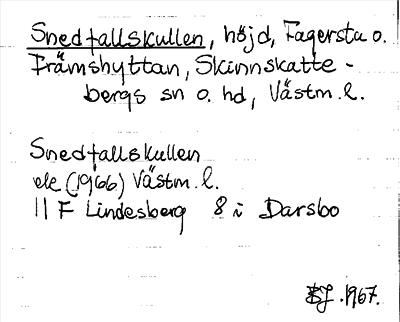 Snedfallskullen, höjd, Fagersta o.
Främshyttan, Skinnskatte-
bergs sn o. hd, Västm. l.
Snedfallskullen
ek (1966) Västm. l.
11 F Lindesberg 8 i Darsbo
1967.